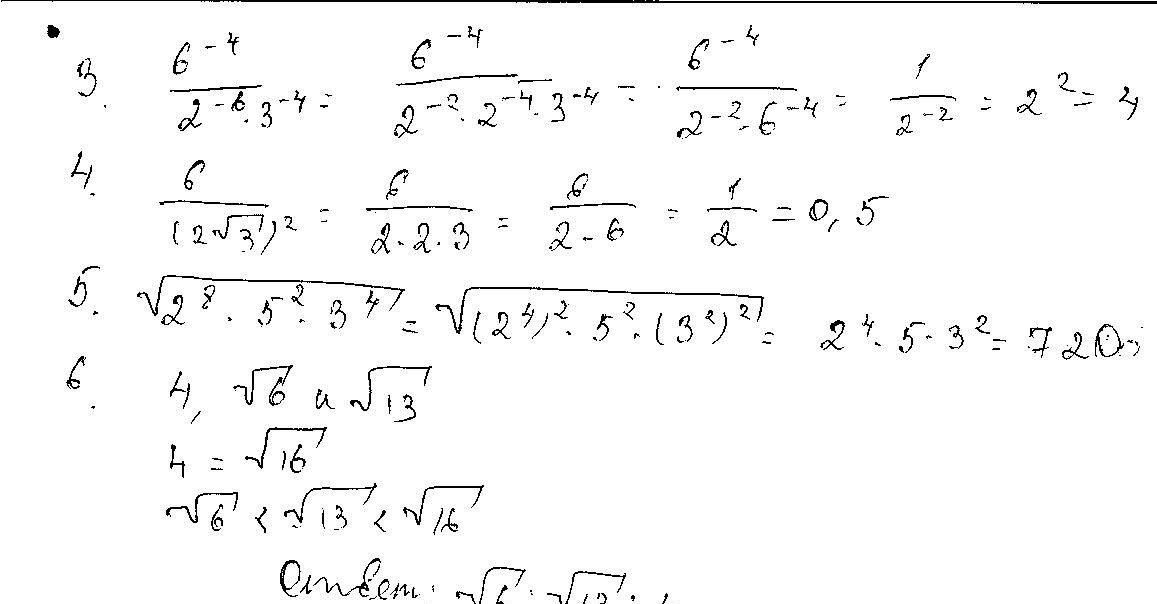 3. 6^-4 / (2^-6 · 3^-4) = 6^-4 / (2^-2 · 2^-4 · 3^-4) = 6^-4 / (2^-2 · 6^-4) = 1 / 2^-2 = 2^2 = 4
4. 6 / (2√3)^2 = 6 / (2·2·3) = 6 / (2·6) = 1/2 = 0,5
5. √(2^8 · 5^2 · 3^4) = √((2^4)^2 · 5^2 · (3^2)^2) = 2^4 · 5 · 3^2 = 720;
6. 4, √6 и √13
4 = √16
√6 < √13 < √16
Ответ: √6; √13;